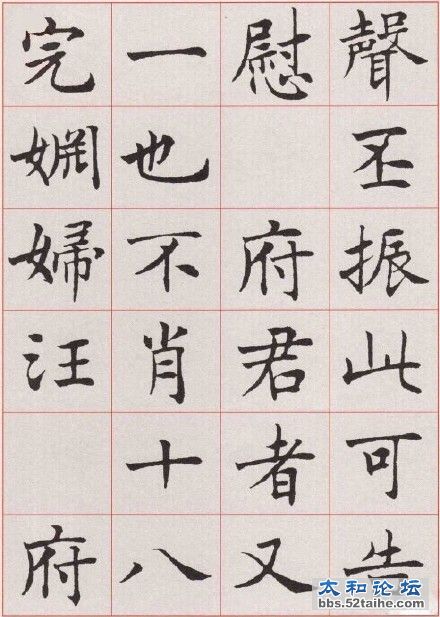 聲丕振此可告
慰府君者又
一也不肖十八
完婣婦汪府
太和论坛
bbs.52taihe.com